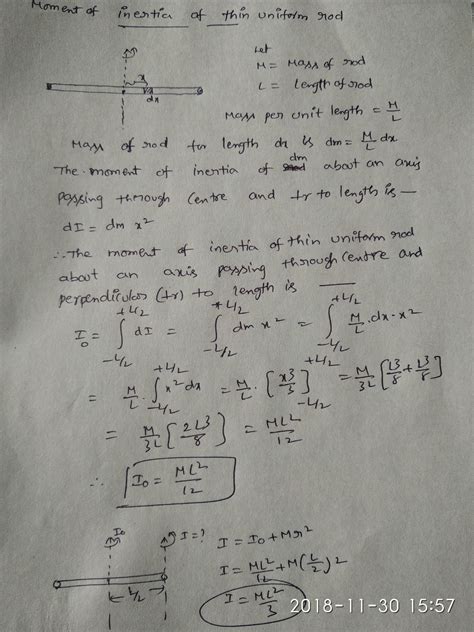 Moment of inertia of thin uniform rod
Let
M = Mass of rod
L = Length of rod
Mass per unit length = M/L
x
dx
Mass of rod for length dx is dm = M/L dx
The moment of inertia of dm about an axis
passing through centre and ⊥r to length is —
dI = dm x²
∴ The moment of inertia of thin uniform rod
about an axis passing through centre and
perpendicular (⊥r) to length is —
I₀ = ∫_{-L/2}^{+L/2} dI = ∫_{-L/2}^{+L/2} dm x² = ∫_{-L/2}^{+L/2} M/L · dx · x²
= M/L · ∫_{-L/2}^{+L/2} x² dx = M/L · [x³/3]_{-L/2}^{+L/2} = M/3L [L³/8 + L³/8]
= M/3L [2L³/8] = ML²/12
∴ I₀ = ML²/12
I₀
I = ?
L/2
I = I₀ + Mr²
I = ML²/12 + M(L/2)²
I = ML²/3
2018-11-30 15:57